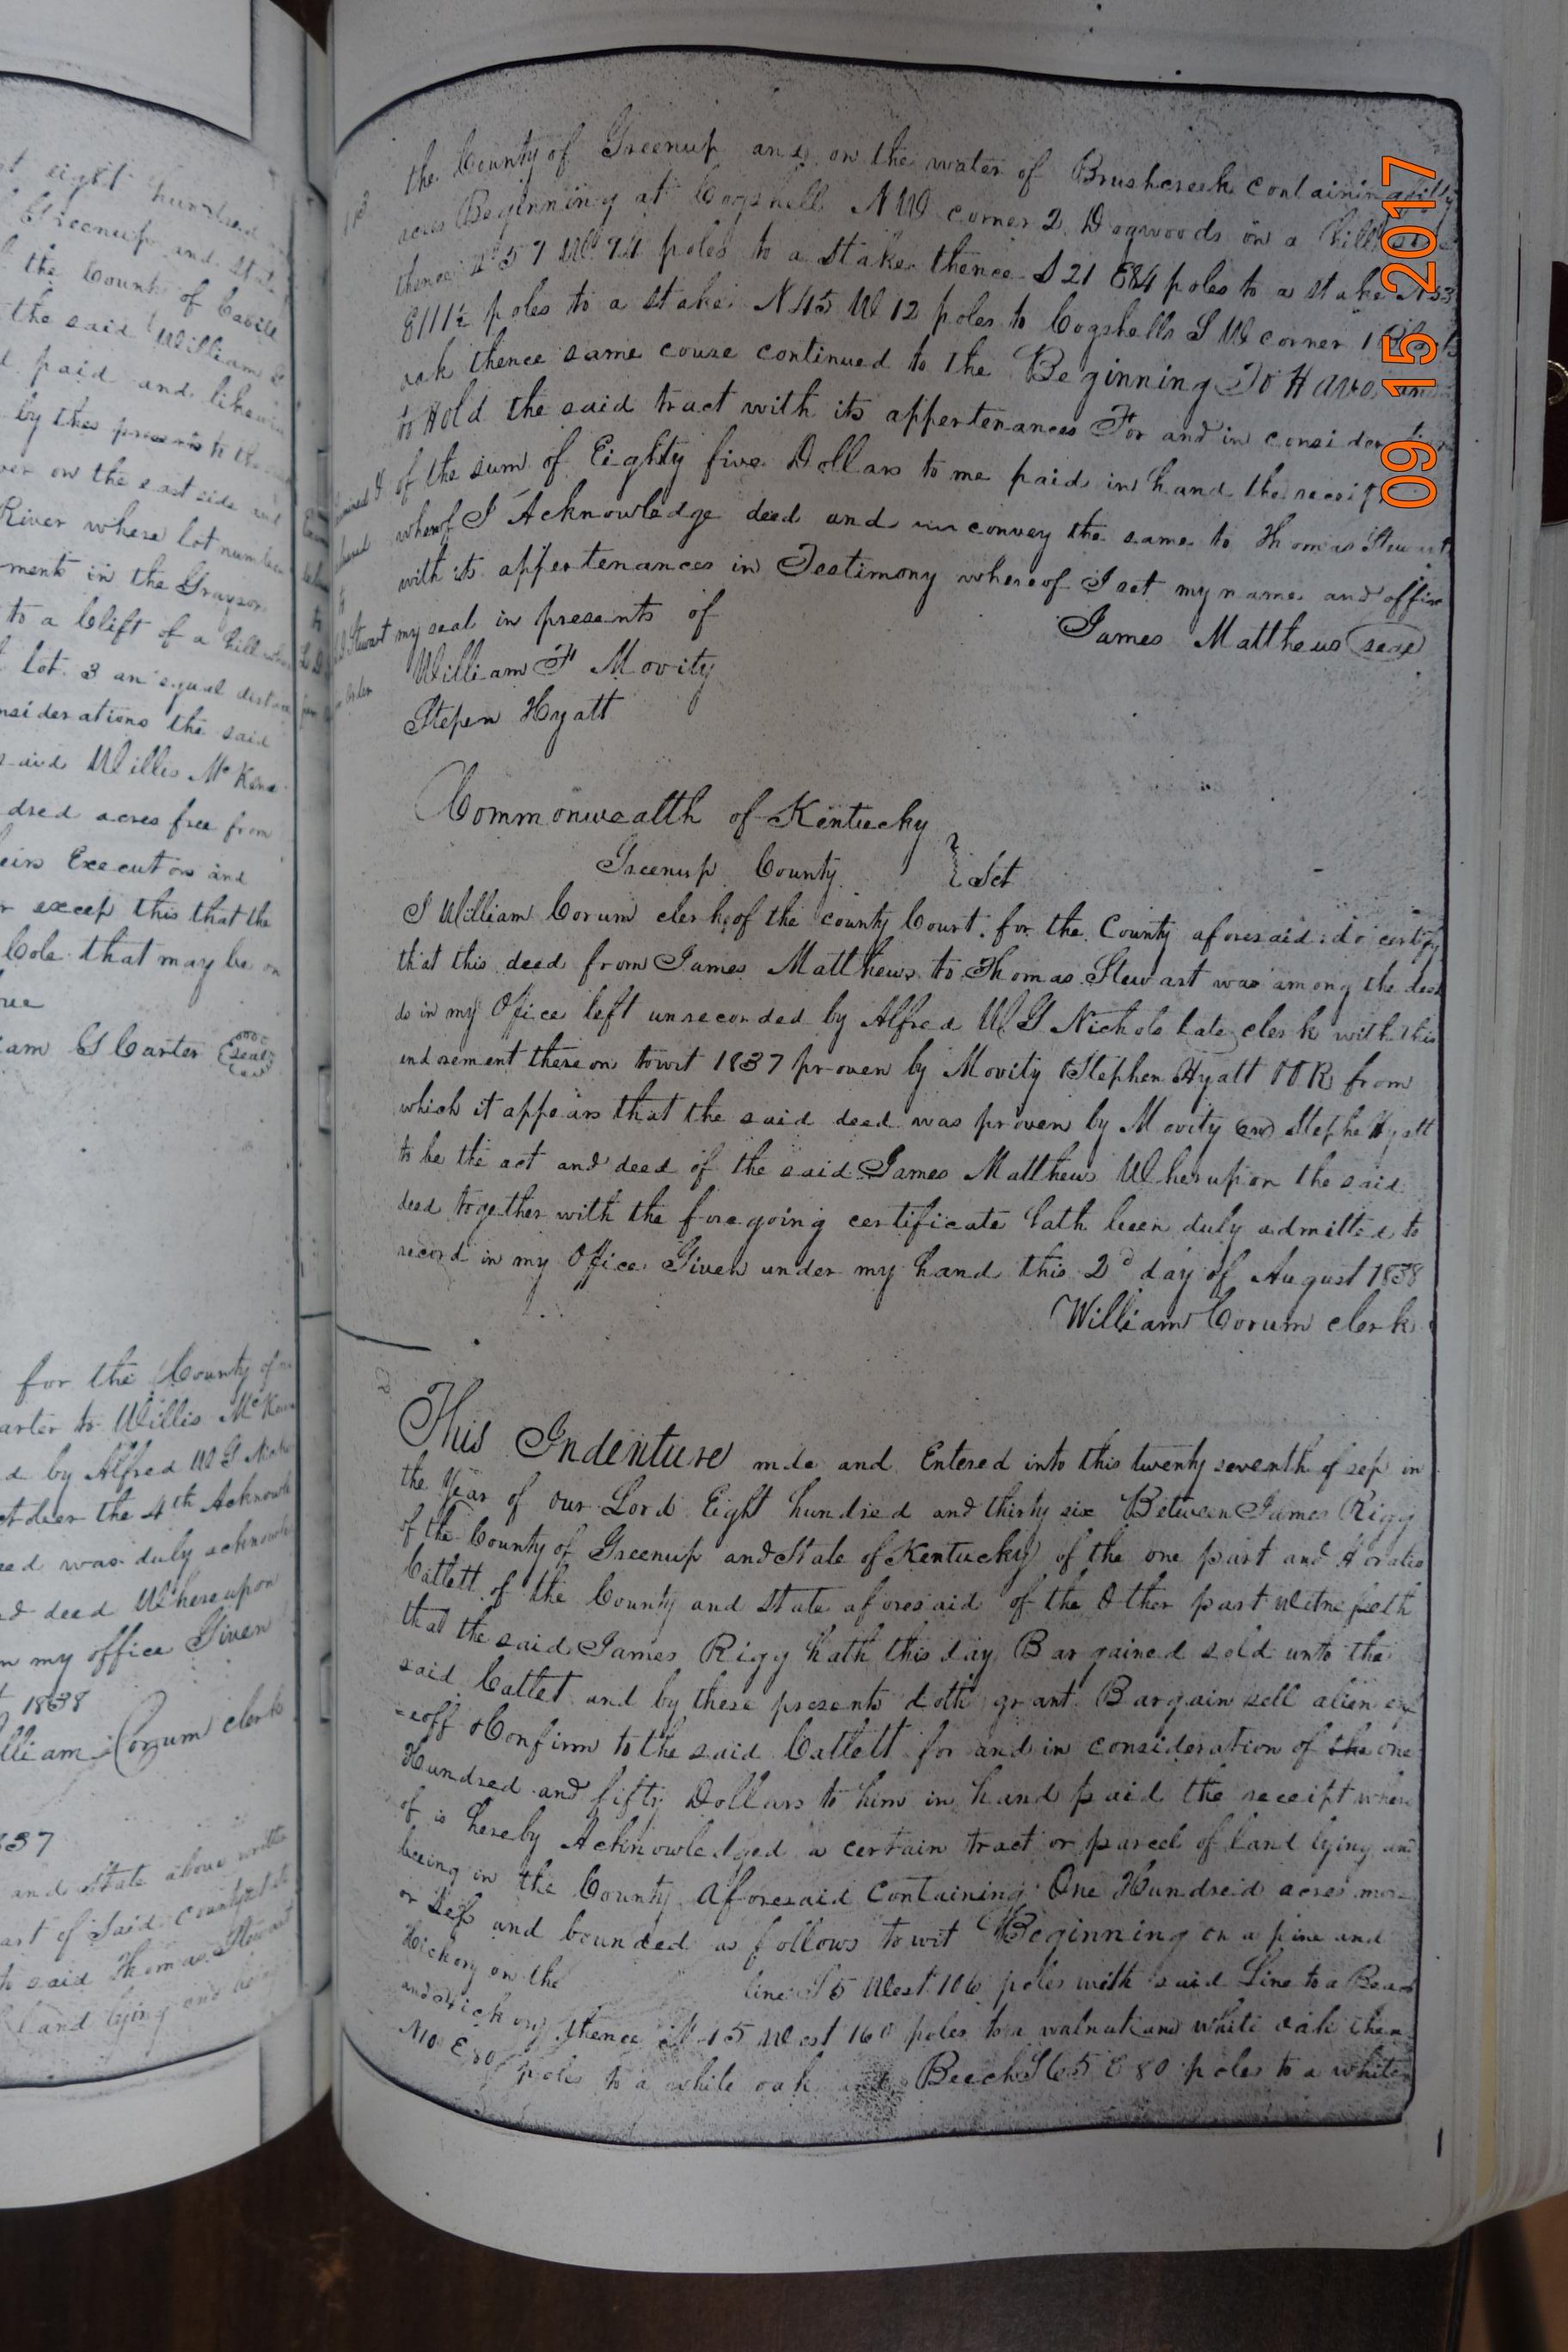 t eight hundred
Greenup and State
the County of
the said William
paid and likewise
by thes presents to the
ver on the east side and
River where lot number
ment in the Grayson
to a Clift of a hill
lot 3 an equal distan
nsiderations the said
said Willis McKen
dred acres free from
eirs Executors and
r excep this that the
Cole that may be on
iam G Carter seal
for the County of
arter to Willis McKen
d by Alfred W G Nich
the 4th Acknowl
eed was duly acknowl
nd deed Whereupon
n my office Given
1838
lliam Corum clerk
837
and State above writte
art of Said County
to said Thomas Stewart
land lying and being
the County of Greenup and on the water of Brushcreek containing fifty
acres Beginning at Cogshell NW corner 2 Dogwoods on a hill
thence 57 W 74 poles to a stake thence S 21 E 84 poles to a stake N 53
E 111½ poles to a stake N 45 W 12 poles to Cogshells S W corner 1
oak thence same couse continued to the Beginning To Have and
to Hold the said tract with its appertenances For and in consideration
of the sum of Eighty five Dollars to me paid in hand the receipt
wherof I Acknowledge deed and convey the same to Thomas Stewart
with its appertenances in Testimony whereof I set my name and affix
my seal in presents of James Matthews seal
William F Movity
Stepen Hyatt
Stewart
Commonwealth of Kentucky
Greenup County } Sct
I William Corum clerk of the county Court for the County aforesaid do certify
that this deed from James Matthews to Thomas Stewart was among the deed
ds in my Office left unrecorded by Alfred W G Nichols late clerk with this
indorsement thereon towit 1837 proven by Movity & Stephen Hyatt OR from
which it appears that the said deed was proven by Movity and Stephe Hyatt
to be the act and deed of the said James Matthews Wherupon the said
deed together with the foregoing certificate hath been duly admitted to
record in my Office Given under my hand this 2d day of August 1838
William Corum clerk
This Indenture mde and Entered into this twenty seventh of sep in
the Year of our Lord Eight hundred and thirty six Between James Rigg
of the County of Greenup and State of Kentucky of the one part and Horatio
Catlett of the County and State aforesaid of the Other part Witnesseth
that the said James Rigg hath this day Bargained sold unto the
said Catlet and by these presents doth grant Bargain sell alien enf
=eoff & Confirm to the said Catlett for and in consideration of the one
Hundred and fifty Dollars to him in hand paid the receipt where
of is hereby Acknowledged a certain tract or parcel of land lying and
beeing in the County Aforesaid Containing One Hundreid acres more
or Less and bounded as follows towit Beginning on a pine and
Hickory on the line S 5 West 106 poles with said Line to a Bea
and Hickory thence N 15 West 160 poles to a walnut and white oak then
N10 E 80 poles to a white oak and Beech S 65 E 80 poles to a white
09 15 2017